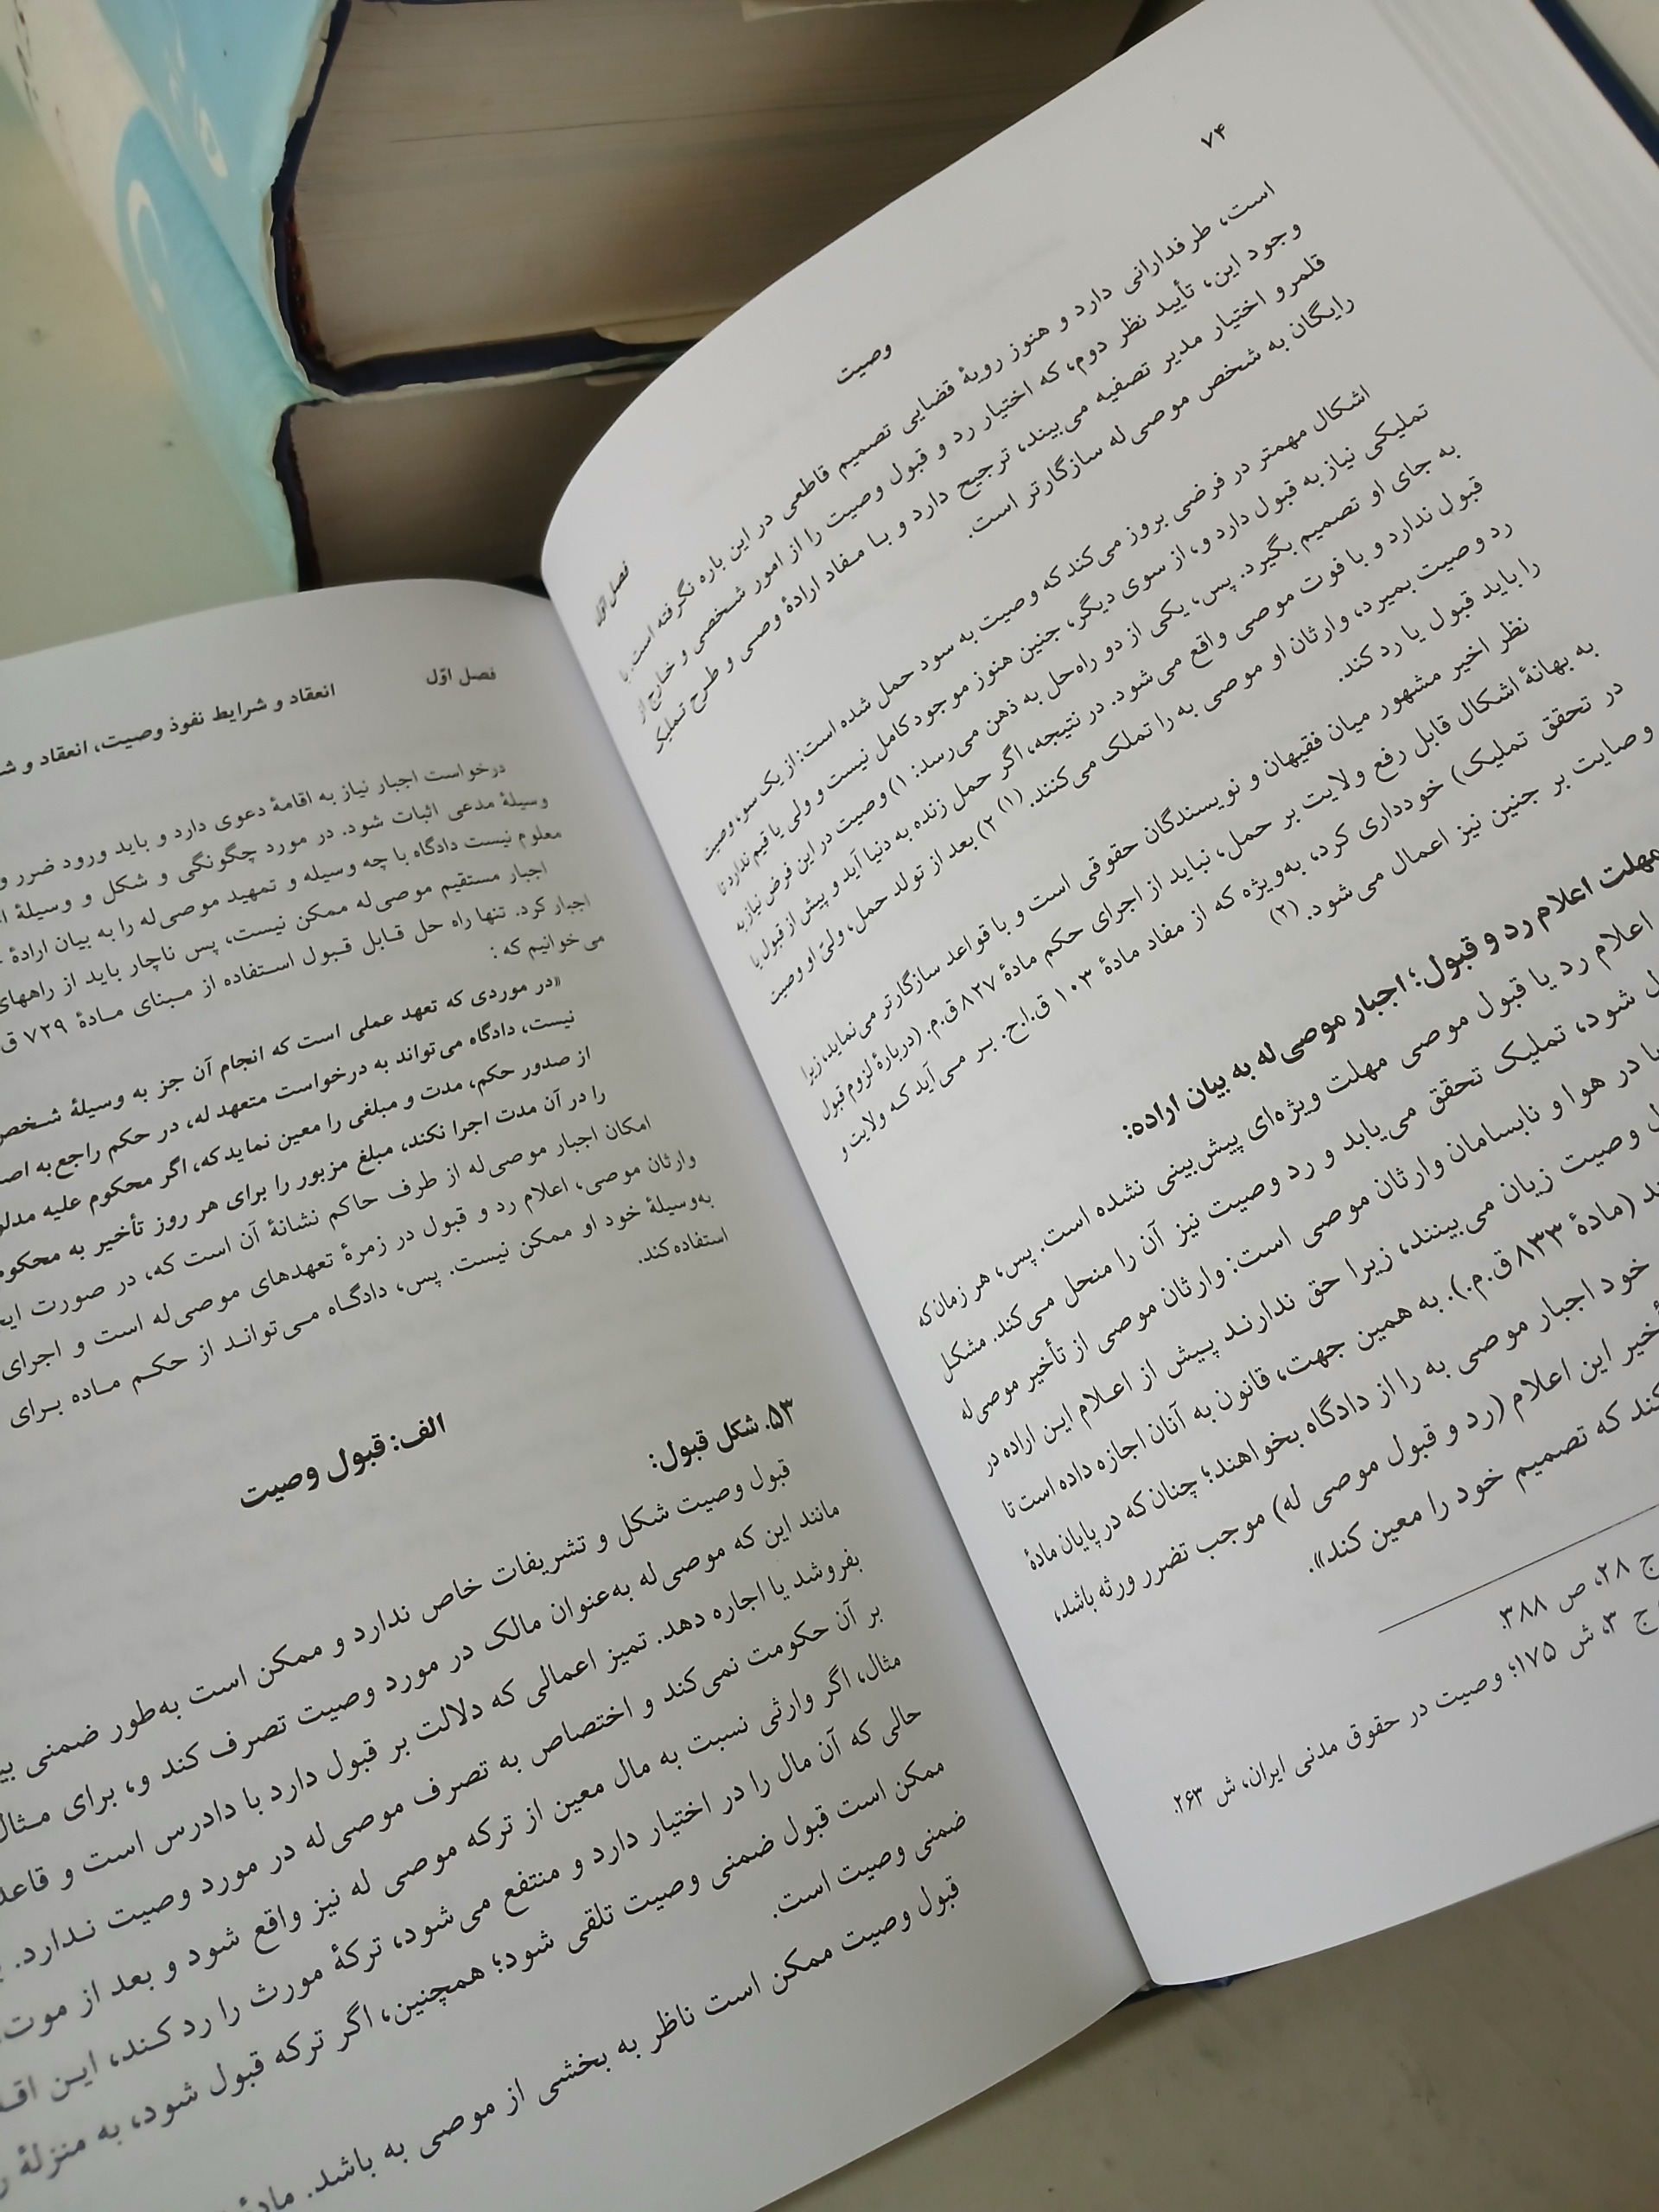 ۷۴
وصیت
فصل اوّل
است، طرفدارانی دارد و هنوز رویهٔ قضایی تصمیم قاطعی در این باره نگرفته است. با
وجود این، تأیید نظر دوم، که اختیار رد و قبول وصیت را از امور شخصی و خارج از
قلمرو اختیار مدیر تصفیه می‌بیند، ترجیح دارد و با مفاد ارادهٔ وصی و طرح تملیک
رایگان به شخص موصی‌له سازگارتر است.
اشکال مهمتر در فرضی بروز می‌کند که وصیت به سود حمل شده است: از یک سو، وصیت
تملیکی نیاز به قبول دارد و، از سوی دیگر، جنین هنوز موجود کامل نیست و ولی یا قیم ندارد تا
به جای او تصمیم بگیرد. پس، یکی از دو راه‌حل به ذهن می‌رسد: ۱) وصیت در این فرض نیاز به
قبول ندارد و با فوت موصی واقع می‌شود. در نتیجه، اگر حمل زنده به دنیا آید و پیش از قبول یا
رد وصیت بمیرد، وارثان او موصی به را تملک می‌کنند. (۱) ۲) بعد از تولد حمل، ولیّ او وصیت
را باید قبول یا رد کند.
نظر اخیر مشهور میان فقیهان و نویسندگان حقوقی است و با قواعد سازگارتر می‌نماید، زیرا
به بهانهٔ اشکال قابل رفع ولایت بر حمل، نباید از اجرای حکم مادهٔ ۸۲۷ ق.م. (دربارهٔ لزوم قبول
در تحقق تملیک) خودداری کرد، به‌ویژه که از مفاد مادهٔ ۱۰۳ ق.ا.ح. بر می‌آید که ولایت و
وصایت بر جنین نیز اعمال می‌شود. (۲)
مهلت اعلام رد و قبول؛ اجبار موصی‌له به بیان اراده:
اعلام رد یا قبول موصی مهلت ویژه‌ای پیش‌بینی نشده است. پس، هر زمان که
شود، تملیک تحقق می‌یابد و رد وصیت نیز آن را منحل می‌کند. مشکل
در هوا و نابسامان وارثان موصی است: وارثان موصی از تأخیر موصی‌له
وصیت زیان می‌بینند، زیرا حق ندارند پیش از اعلام این اراده در
(مادهٔ ۸۳۳ ق.م.). به همین جهت، قانون به آنان اجازه داده است تا
خود اجبار موصی به را از دادگاه بخواهند؛ چنان که در پایان مادهٔ
این اعلام (رد و قبول موصی له) موجب تضرر ورثه باشد،
کند که تصمیم خود را معین کند».
ج ۲۸، ص ۳۸۸.
ج ۳، ش ۱۷۵؛ وصیت در حقوق مدنی ایران، ش ۲۶۳.
فصل اوّل
انعقاد و شرایط نفوذ وصیت، انعقاد و
درخواست اجبار نیاز به اقامهٔ دعوی دارد و باید ورود ضرر و
وسیلهٔ مدعی اثبات شود. در مورد چگونگی و شکل و وسیلهٔ
معلوم نیست دادگاه با چه وسیله و تمهید موصی‌له را به بیان ارادهٔ
اجبار مستقیم موصی‌له ممکن نیست، پس ناچار باید از راههای
اجبار کرد. تنها راه حل قابل قبول استفاده از مبنای مادهٔ ۷۲۹ ق
می‌خوانیم که :
«در موردی که تعهد عملی است که انجام آن جز به وسیلهٔ شخص
نیست، دادگاه می‌تواند به درخواست متعهد له، در حکم راجع به
از صدور حکم، مدت و مبلغی را معین نماید که، اگر محکوم علیه
را در آن مدت اجرا نکند، مبلغ مزبور را برای هر روز تأخیر به
امکان اجبار موصی‌له از طرف حاکم نشانهٔ آن است که، در صورت
وارثان موصی، اعلام رد و قبول در زمرهٔ تعهدهای موصی‌له است و اجرای
به‌وسیلهٔ خود او ممکن نیست. پس، دادگاه می‌تواند از حکم ماده برای
استفاده کند.
الف: قبول وصیت
۵۳. شکل قبول:
قبول وصیت شکل و تشریفات خاص ندارد و ممکن است به‌طور ضمنی
مانند این که موصی‌له به‌عنوان مالک در مورد وصیت تصرف کند و، برای مثال
بفروشد یا اجاره دهد. تمیز اعمالی که دلالت بر قبول دارد با دادرس است و
بر آن حکومت نمی‌کند و اختصاص به تصرف موصی‌له در مورد وصیت ندارد.
مثال، اگر وارثی نسبت به مال معین از ترکه موصی له نیز واقع شود و بعد از موت
حالی که آن مال را در اختیار دارد و منتفع می‌شود، ترکهٔ مورث را رد کند، این
ممکن است قبول ضمنی وصیت تلقی شود؛ همچنین، اگر ترکه قبول شود، به منزلهٔ
ضمنی وصیت است.
قبول وصیت ممکن است ناظر به بخشی از موصی به باشد.